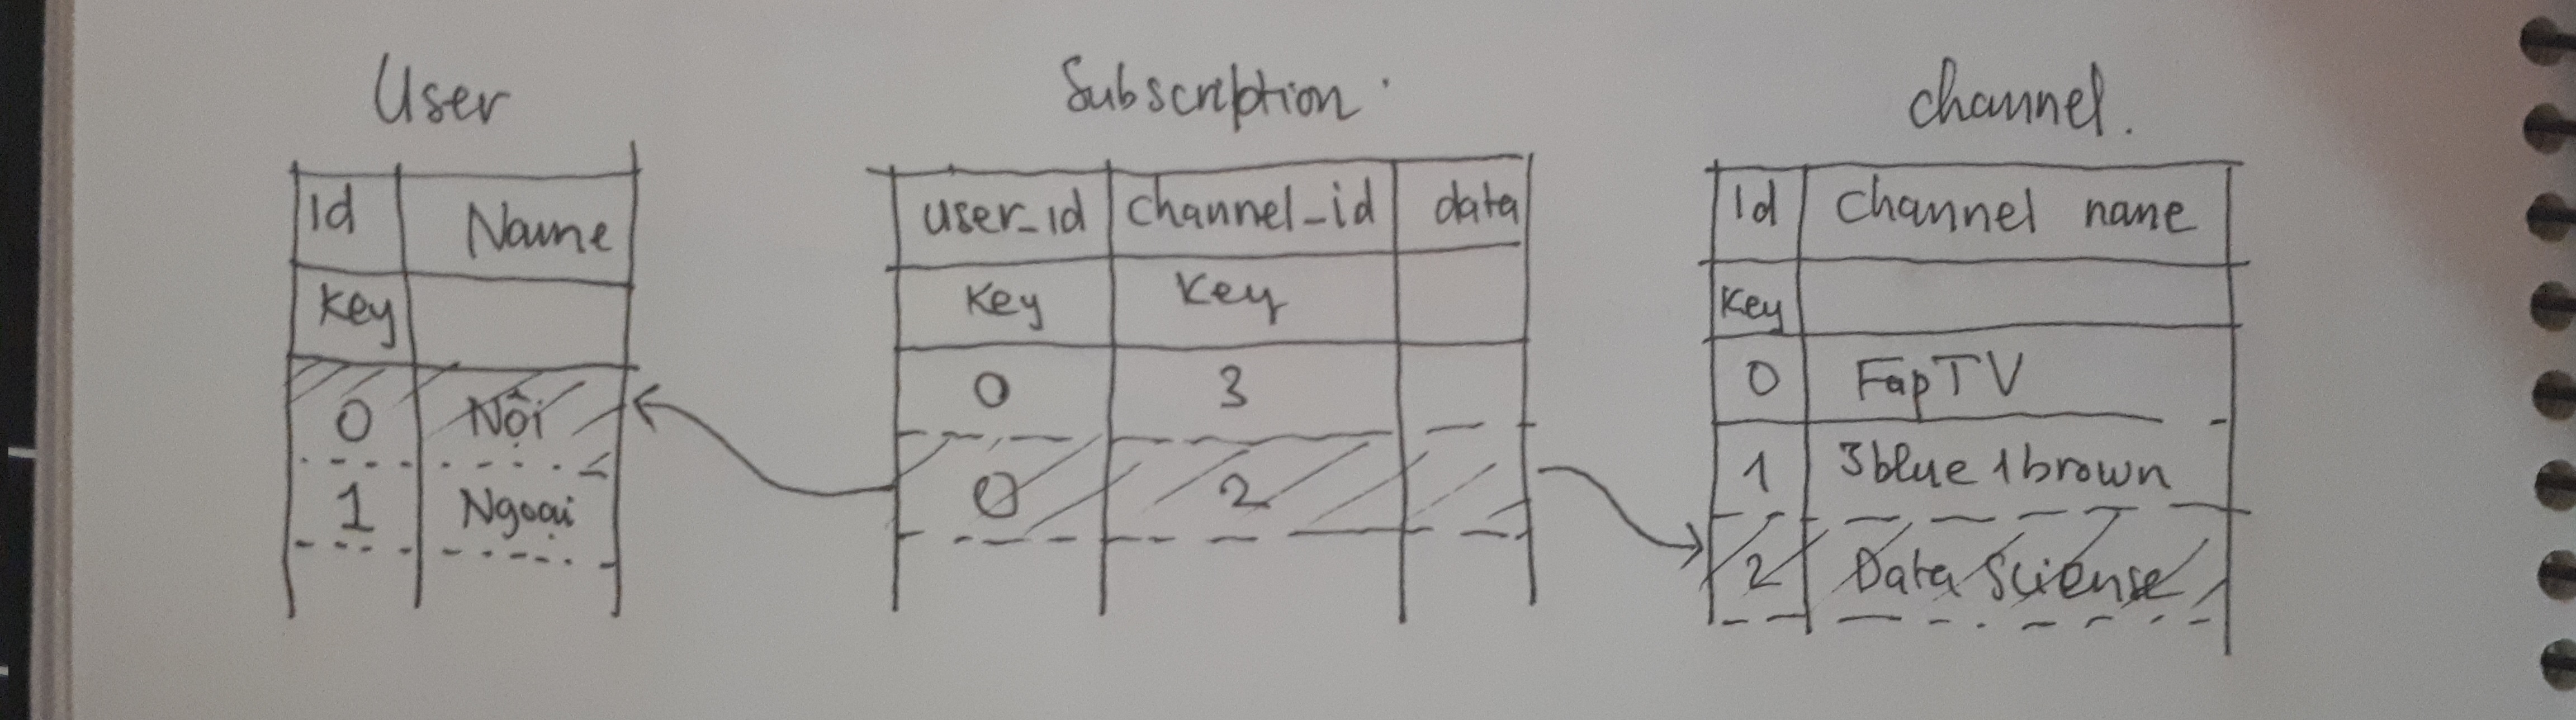 User
Id Name
Key
0 Nội
1 Ngoại
Subscription
user_id channel_id data
Key Key
0 3
0 2
channel.
Id Channel name
Key
0 FapTV
1 3blue1brown
2 Data Sciense